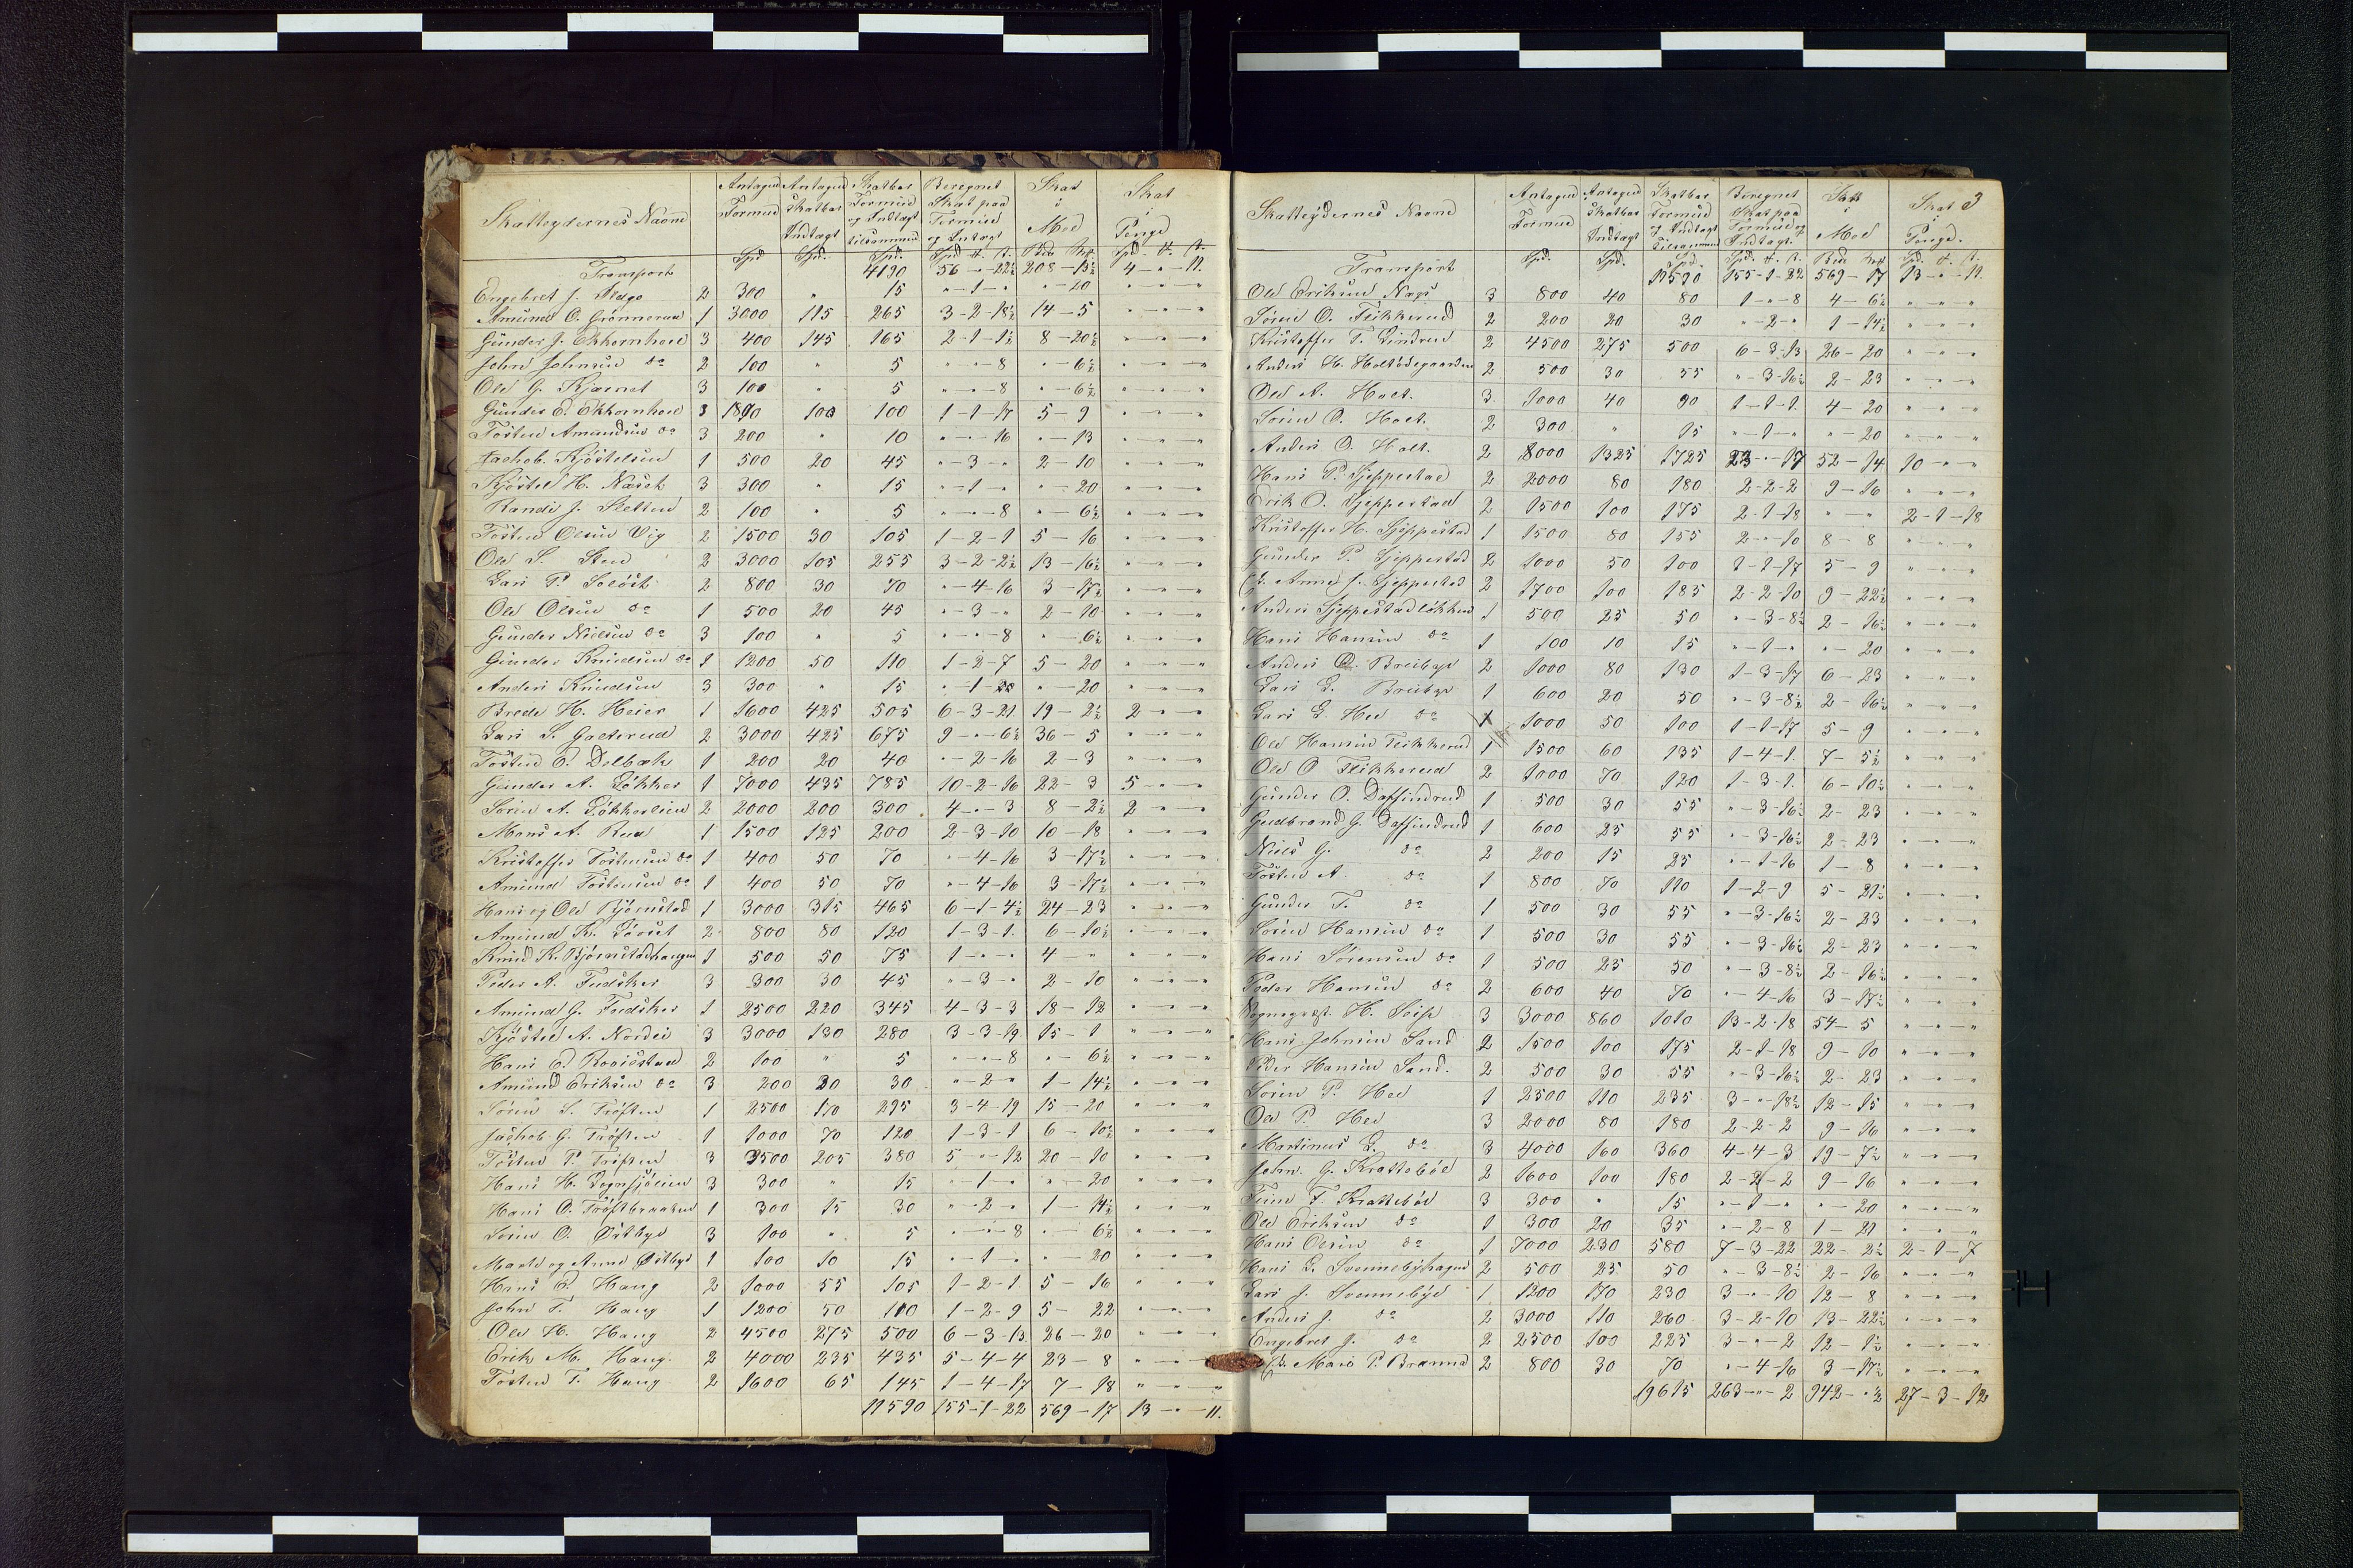 Skatteydernes Navne | Antagen Formue | Antagen Skatbar Indtægt | Skatbar Formue og Indtægt tilsammen | Beregnet Skat paa Formue og Indtægt | Skat i Med | Skat i Penge
Spd | Spd. | Spd. | Spd. # s. | Spd. # s.
Transport 4190 56 - " - 22½ 208 - 13½ 4 - " - 11.
Engebret J. 2 300 " 15 " - 1 - " " - 20 " - " - "
Amund O. Grönnerud 1 3000 115 265 3-2-18½ 14 - 5 " - " - "
Gunder J. Ekhornhoel 3 400 145 165 2-1-1½ 8 - 20½ " - " - "
John Johnsen do 2 100 " 5 " - " - 8 " - 6½ " - " - "
Ole G. Kjernet 3 100 " 5 " - " - 8 " - 6½ " - " - "
Gunder E. Ekhornhoel 3 1800 100 100 1-1-17 5 - 9 " - " - "
Tosten Amundsen do 3 200 " 10 " - " - 16 " - 13 " - " - "
Jachob Kjöstelsen 1 500 20 45 " - 3 - " 2 - 10 " - " - "
Kjöstel H. Næseh 3 300 " 15 " - 1 - " " - 20 " - " - "
Randi J. Sletten 2 100 " 5 " - " - 8 " - 6½ " - " - "
Tosten Olsen Vig 2 1500 30 105 1-2-1 5 - 16 " - " - "
Ole S. Sten 2 3000 105 255 3-2-2½ 13 - 16½ " - " - "
Lars P. Soløst 2 800 30 70 " - 4-16 3 - 17½ " - " - "
Ole Olsen do 1 500 20 45 " - 3 - " 2 - 10 " - " - "
Gunder Nielsen do 3 100 " 5 " - " - 8 " - 6½ " - " - "
Gunder Knudsen do 1 1200 50 110 1-2-7 5 - 20 " - " - "
Anders Knudsen 3 300 " 15 " - 1 - " - 20 " - " - "
Brede H. Heier 1 1600 425 505 6-3-21 19 - 2½ 2 - " - "
Lars S. Gaeterud 2 3000 425 675 9 - " - 6½ 36 - 5 " - " - "
Tosten E. Delbæk 1 200 20 40 " - 2-16 2 - 3 " - " - "
Gunder A. Løkker 1 7000 435 785 10-2-16 22 - 3 5 - " - "
Søren A. Løkkerlien 2 2000 200 300 4 - " - 3 8 - 2½ 2 - " - "
Mons A. Rud 1 1500 125 200 2-3-10 10 - 18 " - " - "
Kristoffer Tostensen do 1 400 50 70 " - 4-16 3 - 17½ " - " - "
Amund Tostensen do 1 400 50 70 " - 4-16 3 - 17½ " - " - "
Hans og Ole Bjørnstad 1 3000 315 465 6-1-4½ 24 - 23 " - " - "
Amund K. Lørset 2 800 80 120 1-3-1. 6 - 10½ " - " - "
Knud K. Bjørnstadhaugen 1 500 50 75 1 - " - " 4 - " " - " - "
Peder A. Fudsker 3 300 30 45 " - 3 - " 2 - 10 " - " - "
Amund G. Fudsker 1 2500 220 345 4-3-3 18 - 12 " - " - "
Kjöstel A. Nordei 3 3000 130 280 3-3-19 15 - 1 " - " - "
Hans E. Rooistad 2 100 " 5 " - " - 8 " - 6½ " - " - "
Amund Eriksen do 3 200 20 30 " - 2 - " 1 - 14½ " - " - "
Sören S. Tröften 1 2500 170 295 3-4-19 15 - 20 " - " - "
Jachob G. Tröften 1 1000 70 120 1-3-1 6 - 10½ " - " - "
Tosten P. Tröften 3 3500 205 380 5 - " - 12 20 - 10 " - " - "
Hans H. Sognsjöeien 3 300 " 15 " - 1 - " " - 20 " - " - "
Hans O. Tröftbraaten 1 300 15 30 " - 2 - " 1 - 14½ " - " - "
Sören O. Østbye 3 100 " 5 " - " - 8 " - 6½ " - " - "
Marte og Anne Østbye 1 100 10 15 " - 1 - " " - 20 " - " - "
Hans E. Haug 2 1000 55 105 1-2-1 5 - 16 " - " - "
John T. Haug 1 1200 50 110 1-2-9 5 - 22 " - " - "
Ole H. Haug 2 4500 275 500 6-3-13 26 - 20 " - " - "
Erik M. Haug 2 4000 235 435 5-4-4 23 - 8 " - " - "
Tosten T. Haug 2 1600 65 145 1-4-17 7 - 18 " - " - "
11590 155-1-22 569 - 17 13 - " - 11.
3
Skatteydernes Navne | Antagen Formue | Antagen Skatbar Indtægt | Skatbar Formue og Indtægt tilsammen | Beregnet Skat paa Formue og Indtægt | Skat i Med | Skat i Penge.
Spd. | Spd. | Spd. | Spd. # s. | Spd. # s.
Transport 11590 155-1-22 569 - 17 13 - " - 11.
Ole Eriksen Næss 3 800 40 80 1 - " - 8 4 - 6½ " - " - "
Sören O. Flikkerud 2 200 20 30 " - 2 - " 1 - 14½ " - " - "
Kristoffer T. Lindrud 2 4500 275 500 6-3-13 26 - 20 " - " - "
Anders H. Holtödegaarden 2 500 30 55 " - 3-16½ 2 - 23 " - " - "
Ole A. Holt. 3 1000 40 90 1-1-1. 4 - 20 " - " - "
Sören O. Holt. 2 300 " 15 " - 1 - " " - 20 " - " - "
Anders O. Holt. 2 8000 1325 1725 23 - " - 17 52 - 14 10 - " - "
Hans P. Sjeppestad 2 2000 80 180 2-2-2 9 - 16 " - " - "
Erik O. Sjeppestad 2 1500 100 175 2-1-18 " - " 2-1-18
Kristoffer H. Sjeppestad 1 1500 80 155 2 - " - 10 8 - 8 " - " - "
Gunder P. Sjeppestad 2 1000 50 100 1-1-17 5 - 9 " - " - "
E. Anne J. Sjeppestad 2 1700 100 185 2-2-10 9 - 22½ " - " - "
Anders Sjeppestadløkken 1 500 25 50 " - 3-8½ 2 - 16½ " - " - "
Hans Hansen do 1 100 10 15 " - 1 - " " - 20 " - " - "
Anders O. Breibye 2 1000 80 130 1-3-17 6 - 23 " - " - "
Lars L. Breibye 1 600 20 50 " - 3-8½ 2 - 16½ " - " - "
Lars L. Hee do 1 1000 50 100 1-1-17 5 - 9 " - " - "
Ole Hansen Flikkerud 1 1500 60 135 1-4-1. 7 - 5½ " - " - "
Ole O Flikkerud 2 1000 70 120 1-3-1. 6 - 10½ " - " - "
Gunder O. Daffindrud 1 500 30 55 " - 3-16½ 2 - 23 " - " - "
Gudbrand G. Daffindrud 1 600 25 55 " - 3-16½ 2 - 23 " - " - "
Niels G. do 2 200 15 25 " - 1-16 1 - 8 " - " - "
Tosten A. do 1 800 70 110 1-2-9 5 - 21½ " - " - "
Gunder T. do 1 500 30 55 " - 3-16½ 2 - 23 " - " - "
Sören Hansen do 1 500 30 55 " - 3-16½ 2 - 23 " - " - "
Hans Sörensen do 1 500 25 50 " - 3-8½ 2 - 16½ " - " - "
Peder Hansen do 2 600 40 70 " - 4-16 3 - 17½ " - " - "
Sognepræst. H. 3 3000 860 1010 13-2-18 54 - 5 " - " - "
Hans Johnsen Sand 2 1500 100 175 2-1-18 9 - 10 " - " - "
Peder Hansen Sand. 2 500 30 55 " - 3-16½ 2 - 23 " - " - "
Sören P. Hee 1 2500 110 235 3 - " - 18½ 12 - 15 " - " - "
Ole P. Hee 3 2000 80 180 2-2-2 9 - 16 " - " - "
Martinus L. do 3 4000 160 360 4-4-3 19 - 7½ " - " - "
John G. Krattebøl 2 1600 100 180 2-2-2 9 - 16 " - " - "
T. Krattebøl 3 300 " 15 " - 1 - " " - 20 " - " - "
Ole Eriksen do 1 300 20 35 " - 2-8 1 - 21 " - " - "
Hans Olsen do 1 7000 230 580 7-3-22 22 - 2½ 2-1-7
Hans L. Svennebyhagen 2 500 25 50 " - 3-8½ 2 - 16 " - " - "
Lars J. Svennebye 1 1200 170 230 3 - " - 10 12 - 8 " - " - "
Anders J. do 2 3000 110 260 3-2-10 13 - 22½ " - " - "
Engebret J. do 2 2500 100 225 3 - " - 2 12 - 1½ " - " - "
E. Mari P. Brænna 2 800 30 70 " - 4-16 3 - 17½ " - " - "
19615 263 - " - 2 942 - " ½ 27-3-12